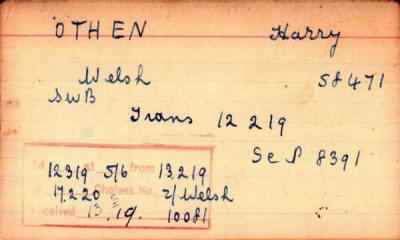 OTHEN Harry
Welsh 58471
SWB
Trans 12 2 19
SeP 8391
12319 5/6 from 13219
17.2.20 Chelsea No. 2/Welsh
received 13 3 19. 10081